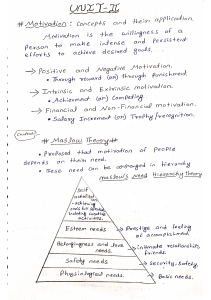 UNIT-II
# Motivation : Concepts and their application.
Motivation is the willingness of a
Person to make intense and persistent
efforts to achieve desired goals.
→ Positive and Negative Motivation.
• Through reward (or) through Punishment
→ Intrinsic and Extrinsic motivation.
• Achievement (or) Competing
→ Financial and Non-Financial motivation.
• Salary Increment (or) Trophy/recognition.
# Maslow Theory #
• Proposed that motivation of people
depends on their need.
• These need can be arranged in hierarchy
Maslow's Need Hierarchy Theory
Self
activities.
Esteem needs. → Prestige and feeling of accomplishment.
Belongingness and love needs. → intimate relationships, friends.
Safety needs → Security, safety.
Physiological needs. → Basic needs.